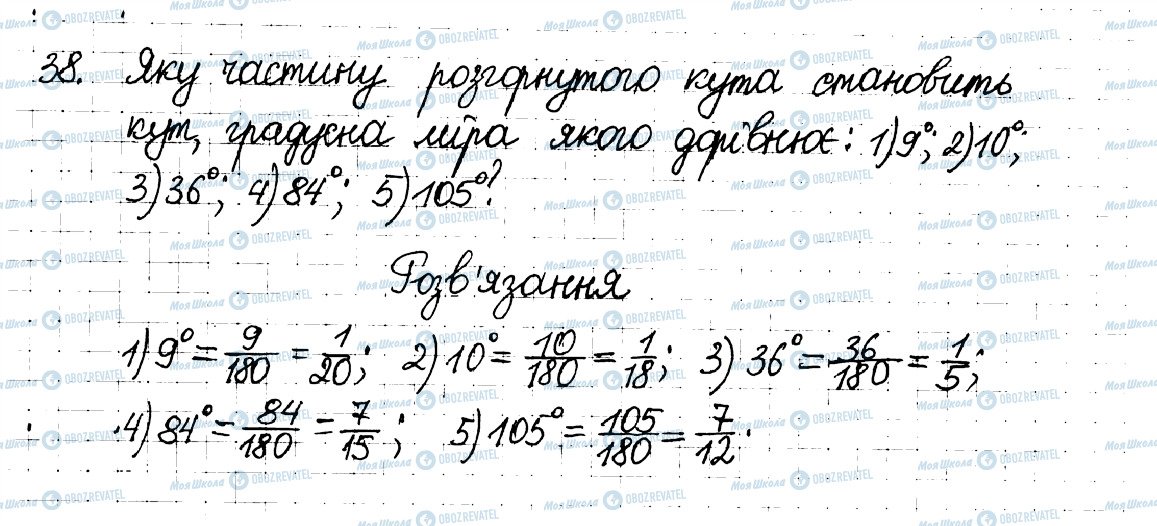 38. Яку частину розгорнутого кута становить
кут, градусна міра якого дорівнює: 1) 9°; 2) 10°;
3) 36°; 4) 84°; 5) 105°?
Розв'язання
1) 9° = 9/180 = 1/20; 2) 10° = 10/180 = 1/18; 3) 36° = 36/180 = 1/5;
4) 84° = 84/180 = 7/15; 5) 105° = 105/180 = 7/12.
МояШкола OBOZREVATEL